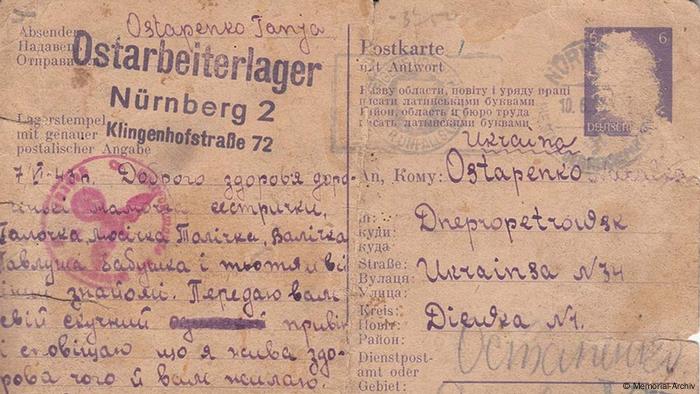 Absender:
Надавець:
Отправитель:
Ostapenko Tanja
Ostarbeiterlager
Nürnberg 2
Klingenhofstraße 72
Lagerstempel
mit genauer
postalischer Angabe
7 43р. Доброго здоровъя доро-
маточка сестрички,
Галочка, Люсічка Талічка, Валічка
Павлуша бабушка і тьотя и всі
знайомі. Передаю вам
свій скучний привіт
і сповіщаю що я жива здо-
рова чого й вам жилаю.
Postkarte
mit Antwort
Назву области, повіту і уряду праці
писати латинськими буквами
Район, область и бюро труда
писать латынскими буквами
6 6
DEUTSCHES
NÜRN
10.6
Ukraina
An, Кому: Ostapenko
in:
куди:
куда
Dnepropetrovsk
Straße:
Вулиця:
Улица:
Ukrainsa N34
Kreis:
Повіт
Район:
Dievka N1.
Dienstpost-
amt oder
Gebiet:
Остапенко
© Memorial-Archiv